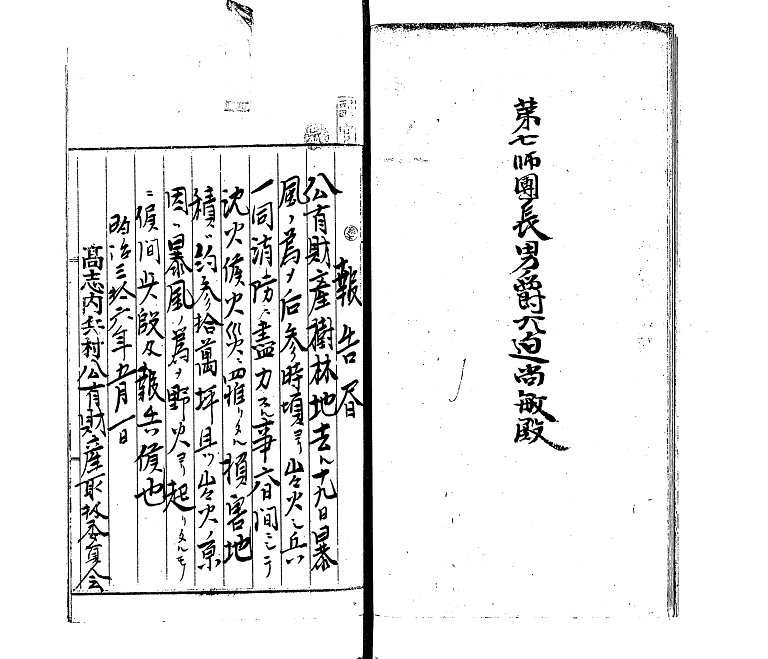 第七師團長男爵大迫尚敏殿
報告書
公有財産樹林地去ル十九日暴
風ノ為メ后参時頃ヨリ出火シ兵
一同消防ニ盡力スル事六日間ニシテ
沈火候火災ニ罹リタル損害地
積ハ約参拾萬坪且ツ出火ノ原
因ハ暴風ノ為メ野火ヨリ起リタルモノ
ニ候間此段及報告候也
明治三拾六年五月一日
髙志内兵村公有財産取扱委員会